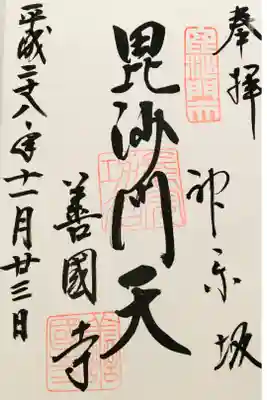 奉拝
神楽坂
毘沙門天
善國寺
平成二十八年十一月廿三日